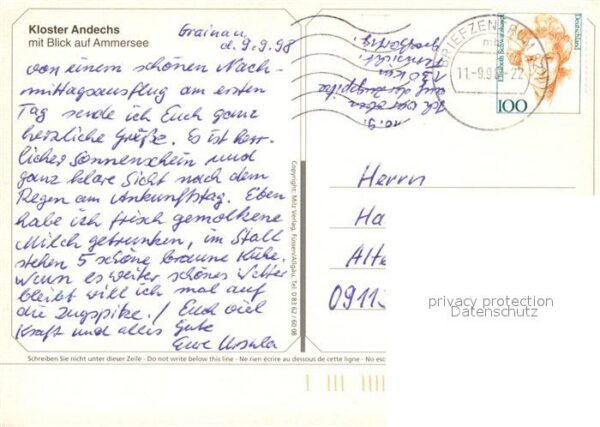 Kloster Andechs
mit Blick auf Ammersee
Grainau,
d. 9.9.98
von einem schönen Nach-
mittagsausflug am ersten
Tag sende ich Euch ganz
herzliche Grüße. Es ist herr-
licher Sonnenschein und
ganz klare Sicht nach dem
Regen am Ankunftstag. Eben
habe ich frisch gemolkene
Milch getrunken, im Stall
stehen 5 schöne braune Kühe.
Wenn es weiter schönes Wetter
bleibt will ich mal auf
die Zugspitze. / Euch viel
Kraft und alles Gute
Eure Ursula
10.9.
Ich war oben
auf der Zugspitze
150 km
Fernsicht,
großartig.
Copyright: Milz Verlag, Füssen/Allgäu, Tel. 0 83 62 / 60 08
BRIEFZENTRUM
11.-9.98-22
Elisabeth Schwarzkopf
Deutschland
100
Herrn
Ha
Alte
0911
privacy protection
Datenschutz
Schreiben Sie nicht unter dieser Zeile - Do not write below this line - Ne rien écrire au dessous de cette ligne - No esc